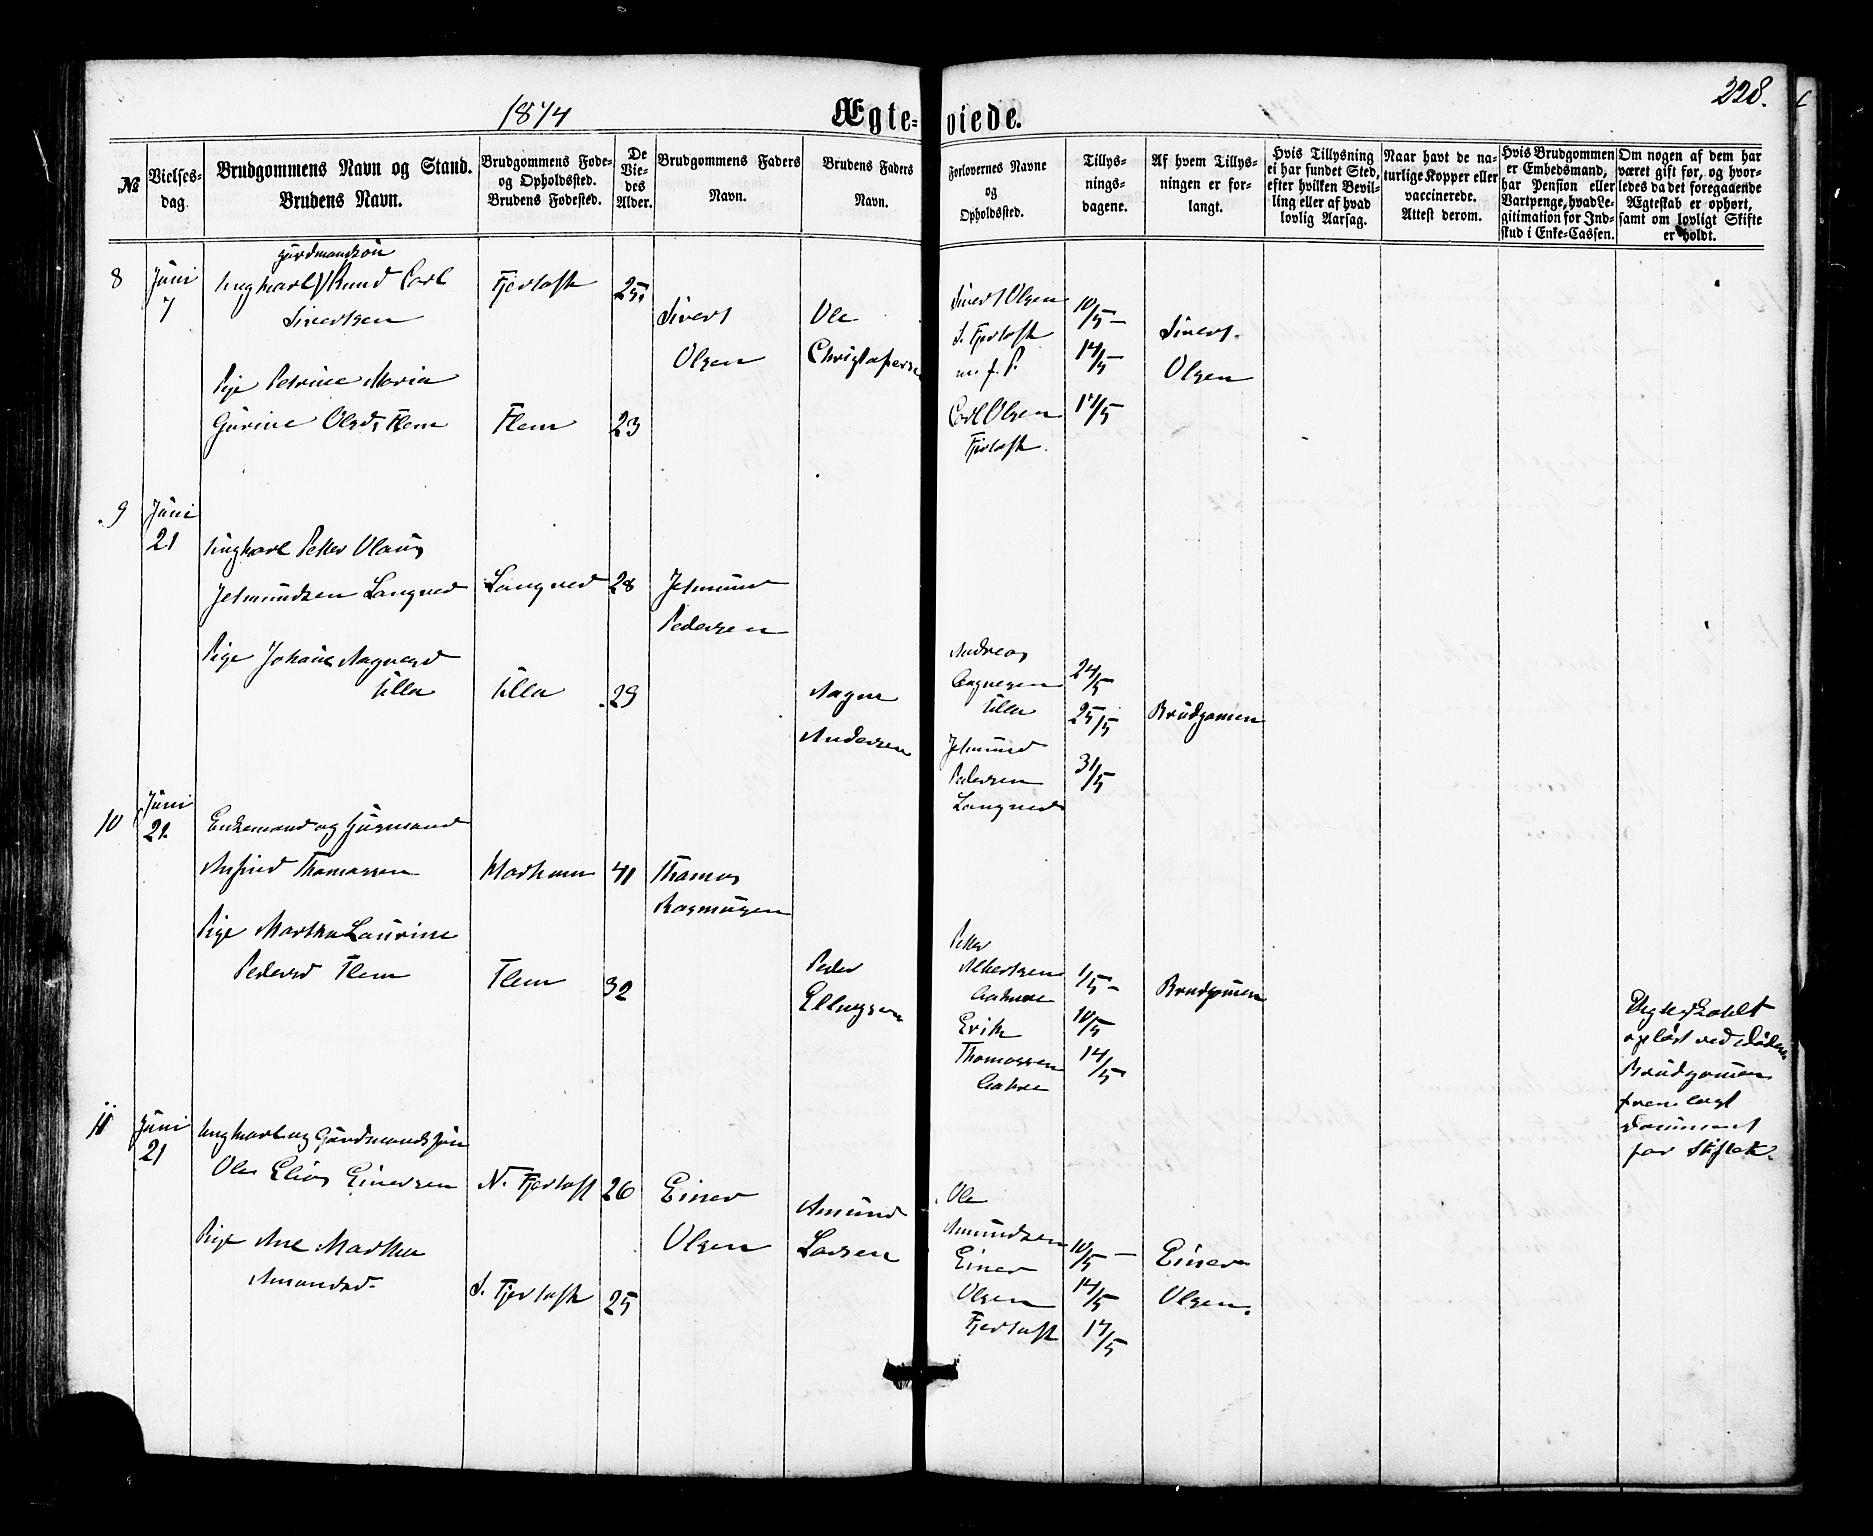 1874
Ægte-
viede.
228.
№
Vielses-
dag.
Brudgommens Navn og Stand.
Brudens Navn.
Brudgommens Føde-
og Opholdssted.
Brudens Fødested.
De
Vie-
des
Alder.
Brudgommens Faders
Navn.
Brudens Faders
Navn.
Forlovernes Navne
og
Opholdssted.
Tillys-
nings-
dagene.
Af hvem Tillys-
ningen er for-
langt.
Hvis Tillysning
ei har fundet Sted,
efter hvilken Bevil-
ling eller af hvad
lovlig Aarsag.
Naar havt de na-
turlige Kopper eller
vaccinerede.
Attest derom.
Hvis Brudgommen
er Embedsmand,
har Pension eller
Vartpenge, hvad Le-
gitimation for Ind-
skud i Enke-Cassen.
Om nogen af dem har
været gift før, og hvor-
ledes da det foregaaende
Ægteskab er ophørt,
samt om lovligt Skifte
er holdt.
8
Juni
7
gaardmandsøn
Ungkarl Knud Carl
Sivertsen
Fjertoft
25
Sivert
Olsen
Ole
Christophersen
Pige Petrine Maria
Gurine Olsd. Flem
Flem
23
Sivert Olsen
S. Fjertoft
m. f. P.
Carl Olsen
Fjertoft.
10/5
14/5
17/5
Sivert
Olsen
9
Juni
21
Ungkarl Petter Olaus
Jetmundsen Langved
Langved
28
Jetmund
Pedersen
Pige Johane Aagesd
Ulla
Ulla
29
Aage
Andersen
Andreas
Aagesen
Ulla
Jetmund
Pedersen
Langved
24/5
25/5
31/5
Brudgomen
10
Juni
21
Enkemand og Husmand
Anfind Thomassen
41
Thomas
Rasmusen
Pige Martha Laurine
Pedersd Flem
Flem
32
Peder
Ellingsen
Petter
Albertsen
Erik
Thomassen
1/5
10/5
14/5
Brudgomen
Ægteskabet
opløst ved Døden
Brudgomen
fremlagt
Document
for Skifte
11
Juni
21
Ungkarl og Gaardmandssøn
Ole Elias Einersen
N. Fjertoft
26
Einer
Olsen
Amund
Larsen
Pige Ane Marthea
Amundsd.
S. Fjertoft
25
Ole
Amundsen
Einer
Olsen
Fjertoft
10/5
14/5
17/5
Einer
Olsen.